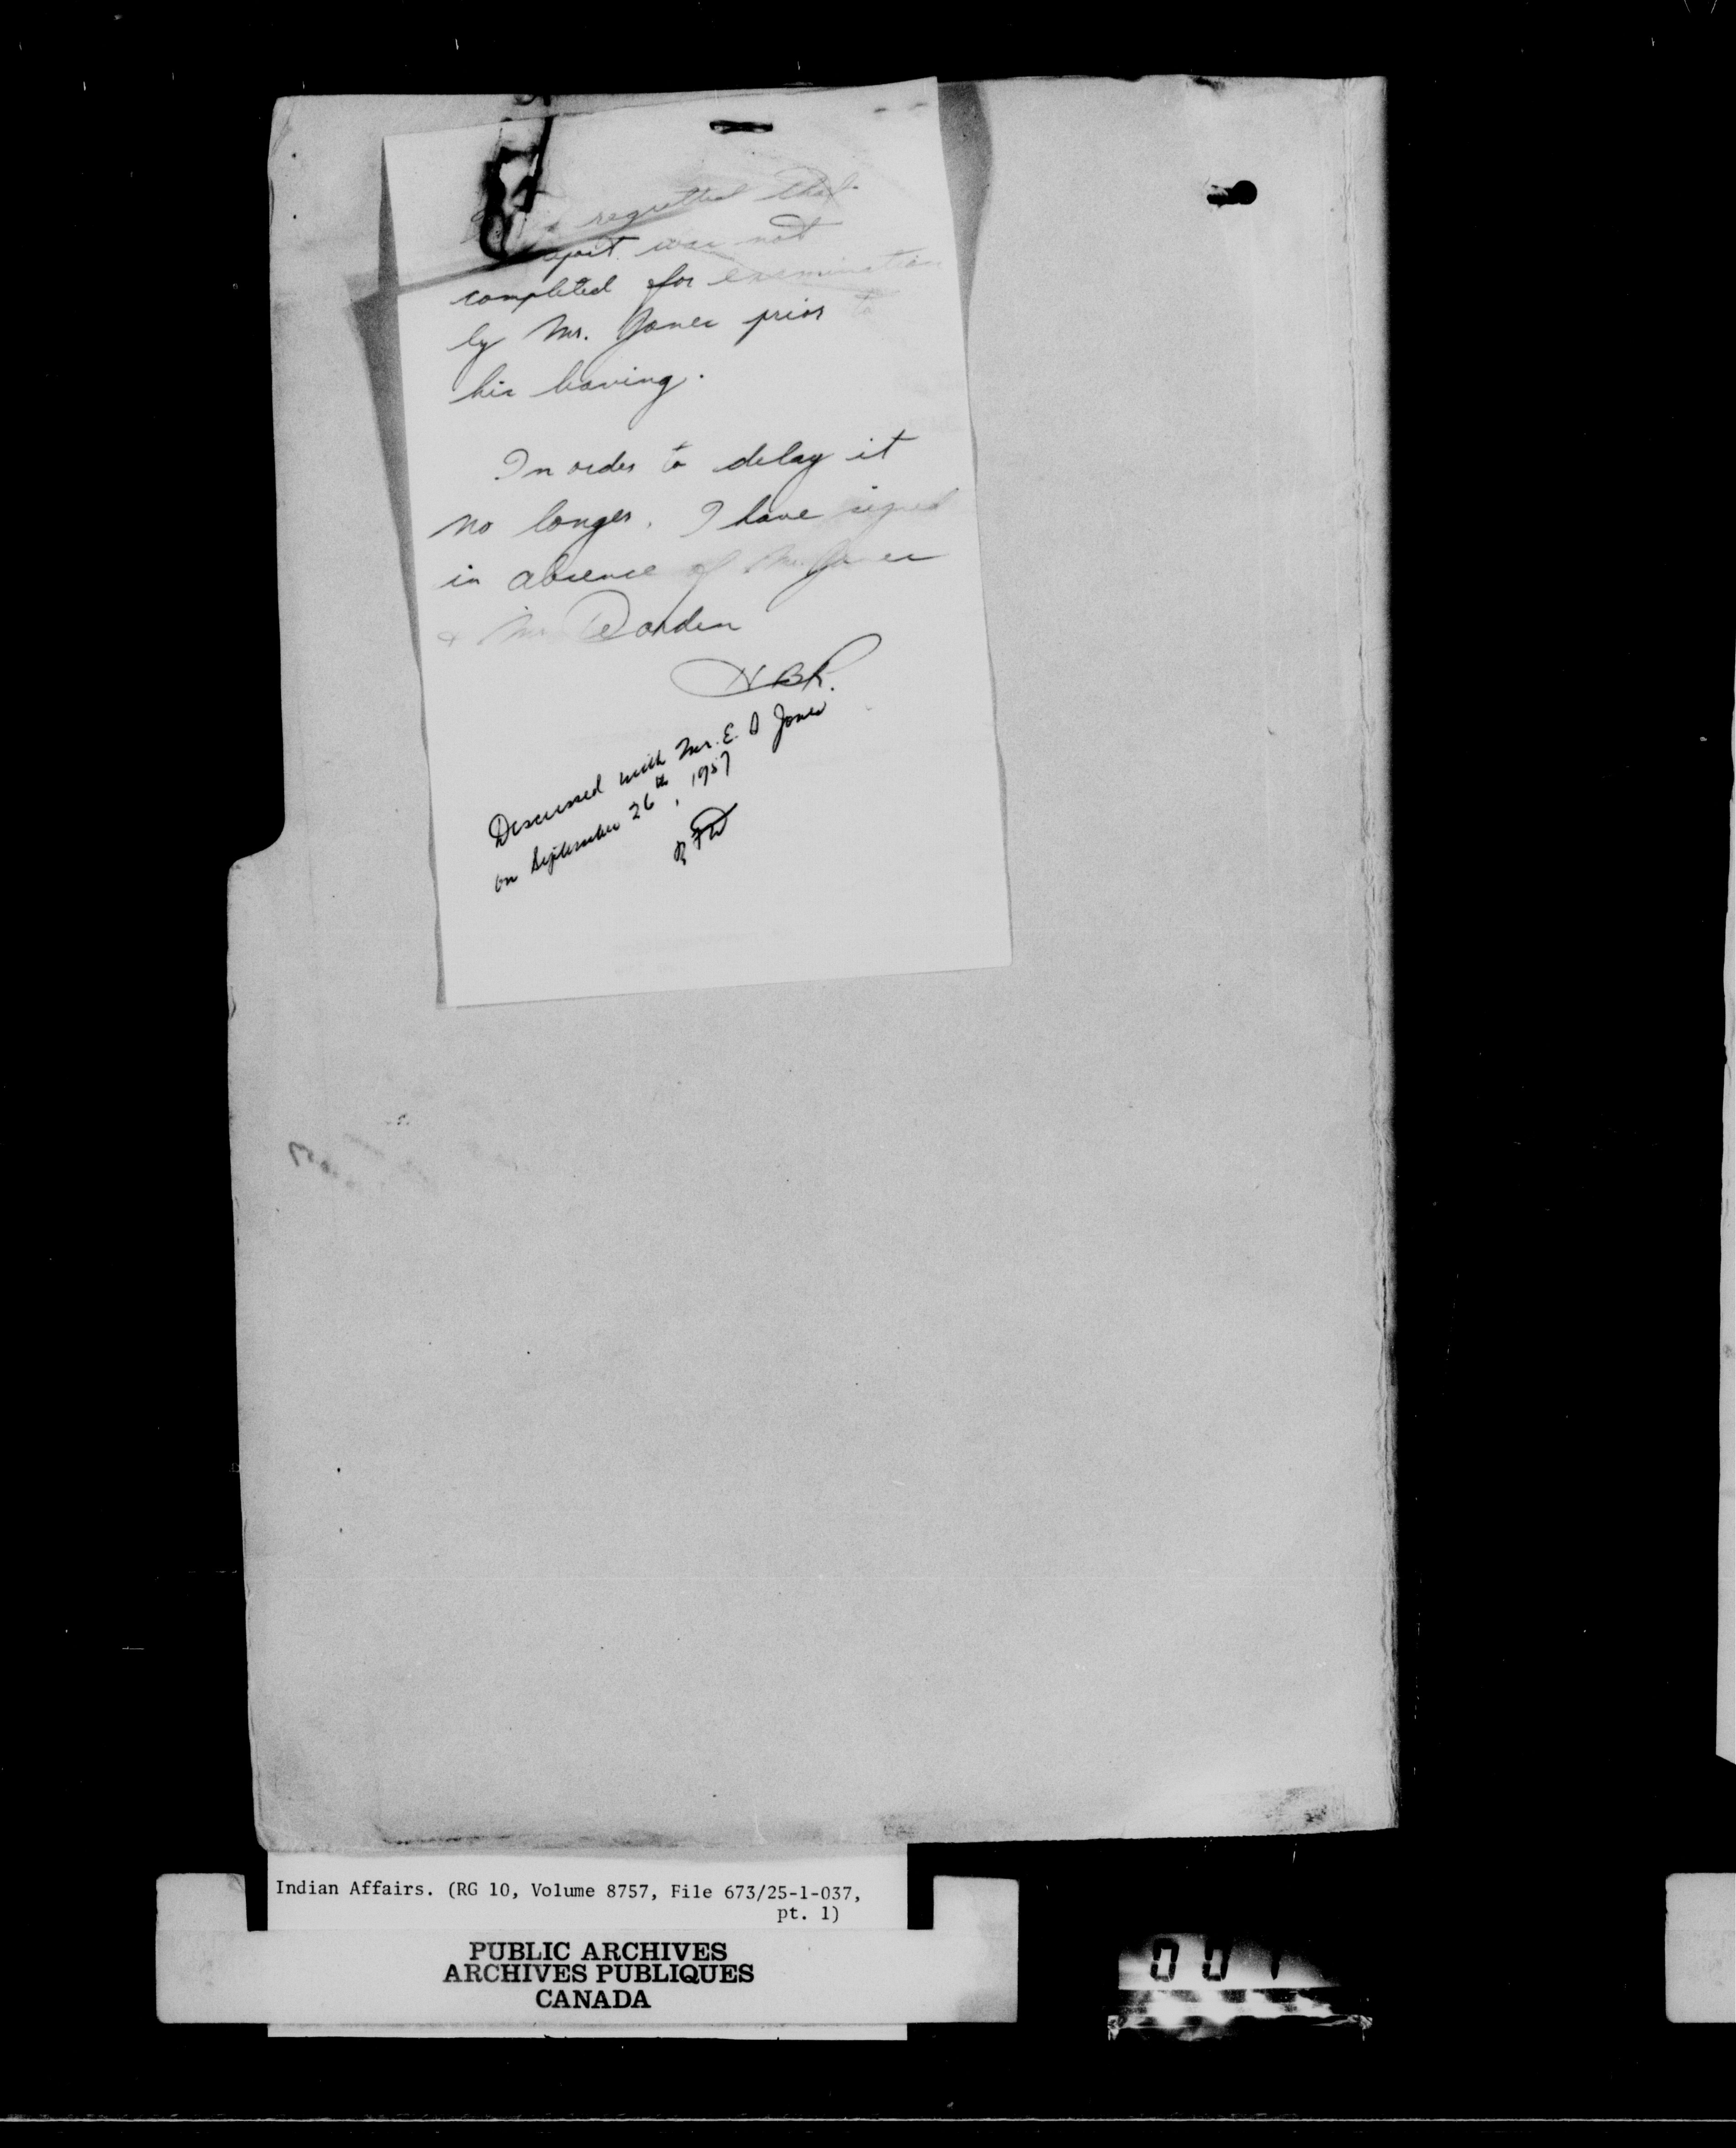 regretted that
report was not
completed for examination
by Mr. Jones prior to
his leaving.
In order to delay it
no longer, I have signed
in absence of Mr. Jones
& Mr
Discussed with Mr. E. D Jones
on September 26th, 1957
Indian Affairs. (RG 10, Volume 8757, File 673/25-1-037,
pt. 1)
PUBLIC ARCHIVES
ARCHIVES PUBLIQUES
CANADA
001